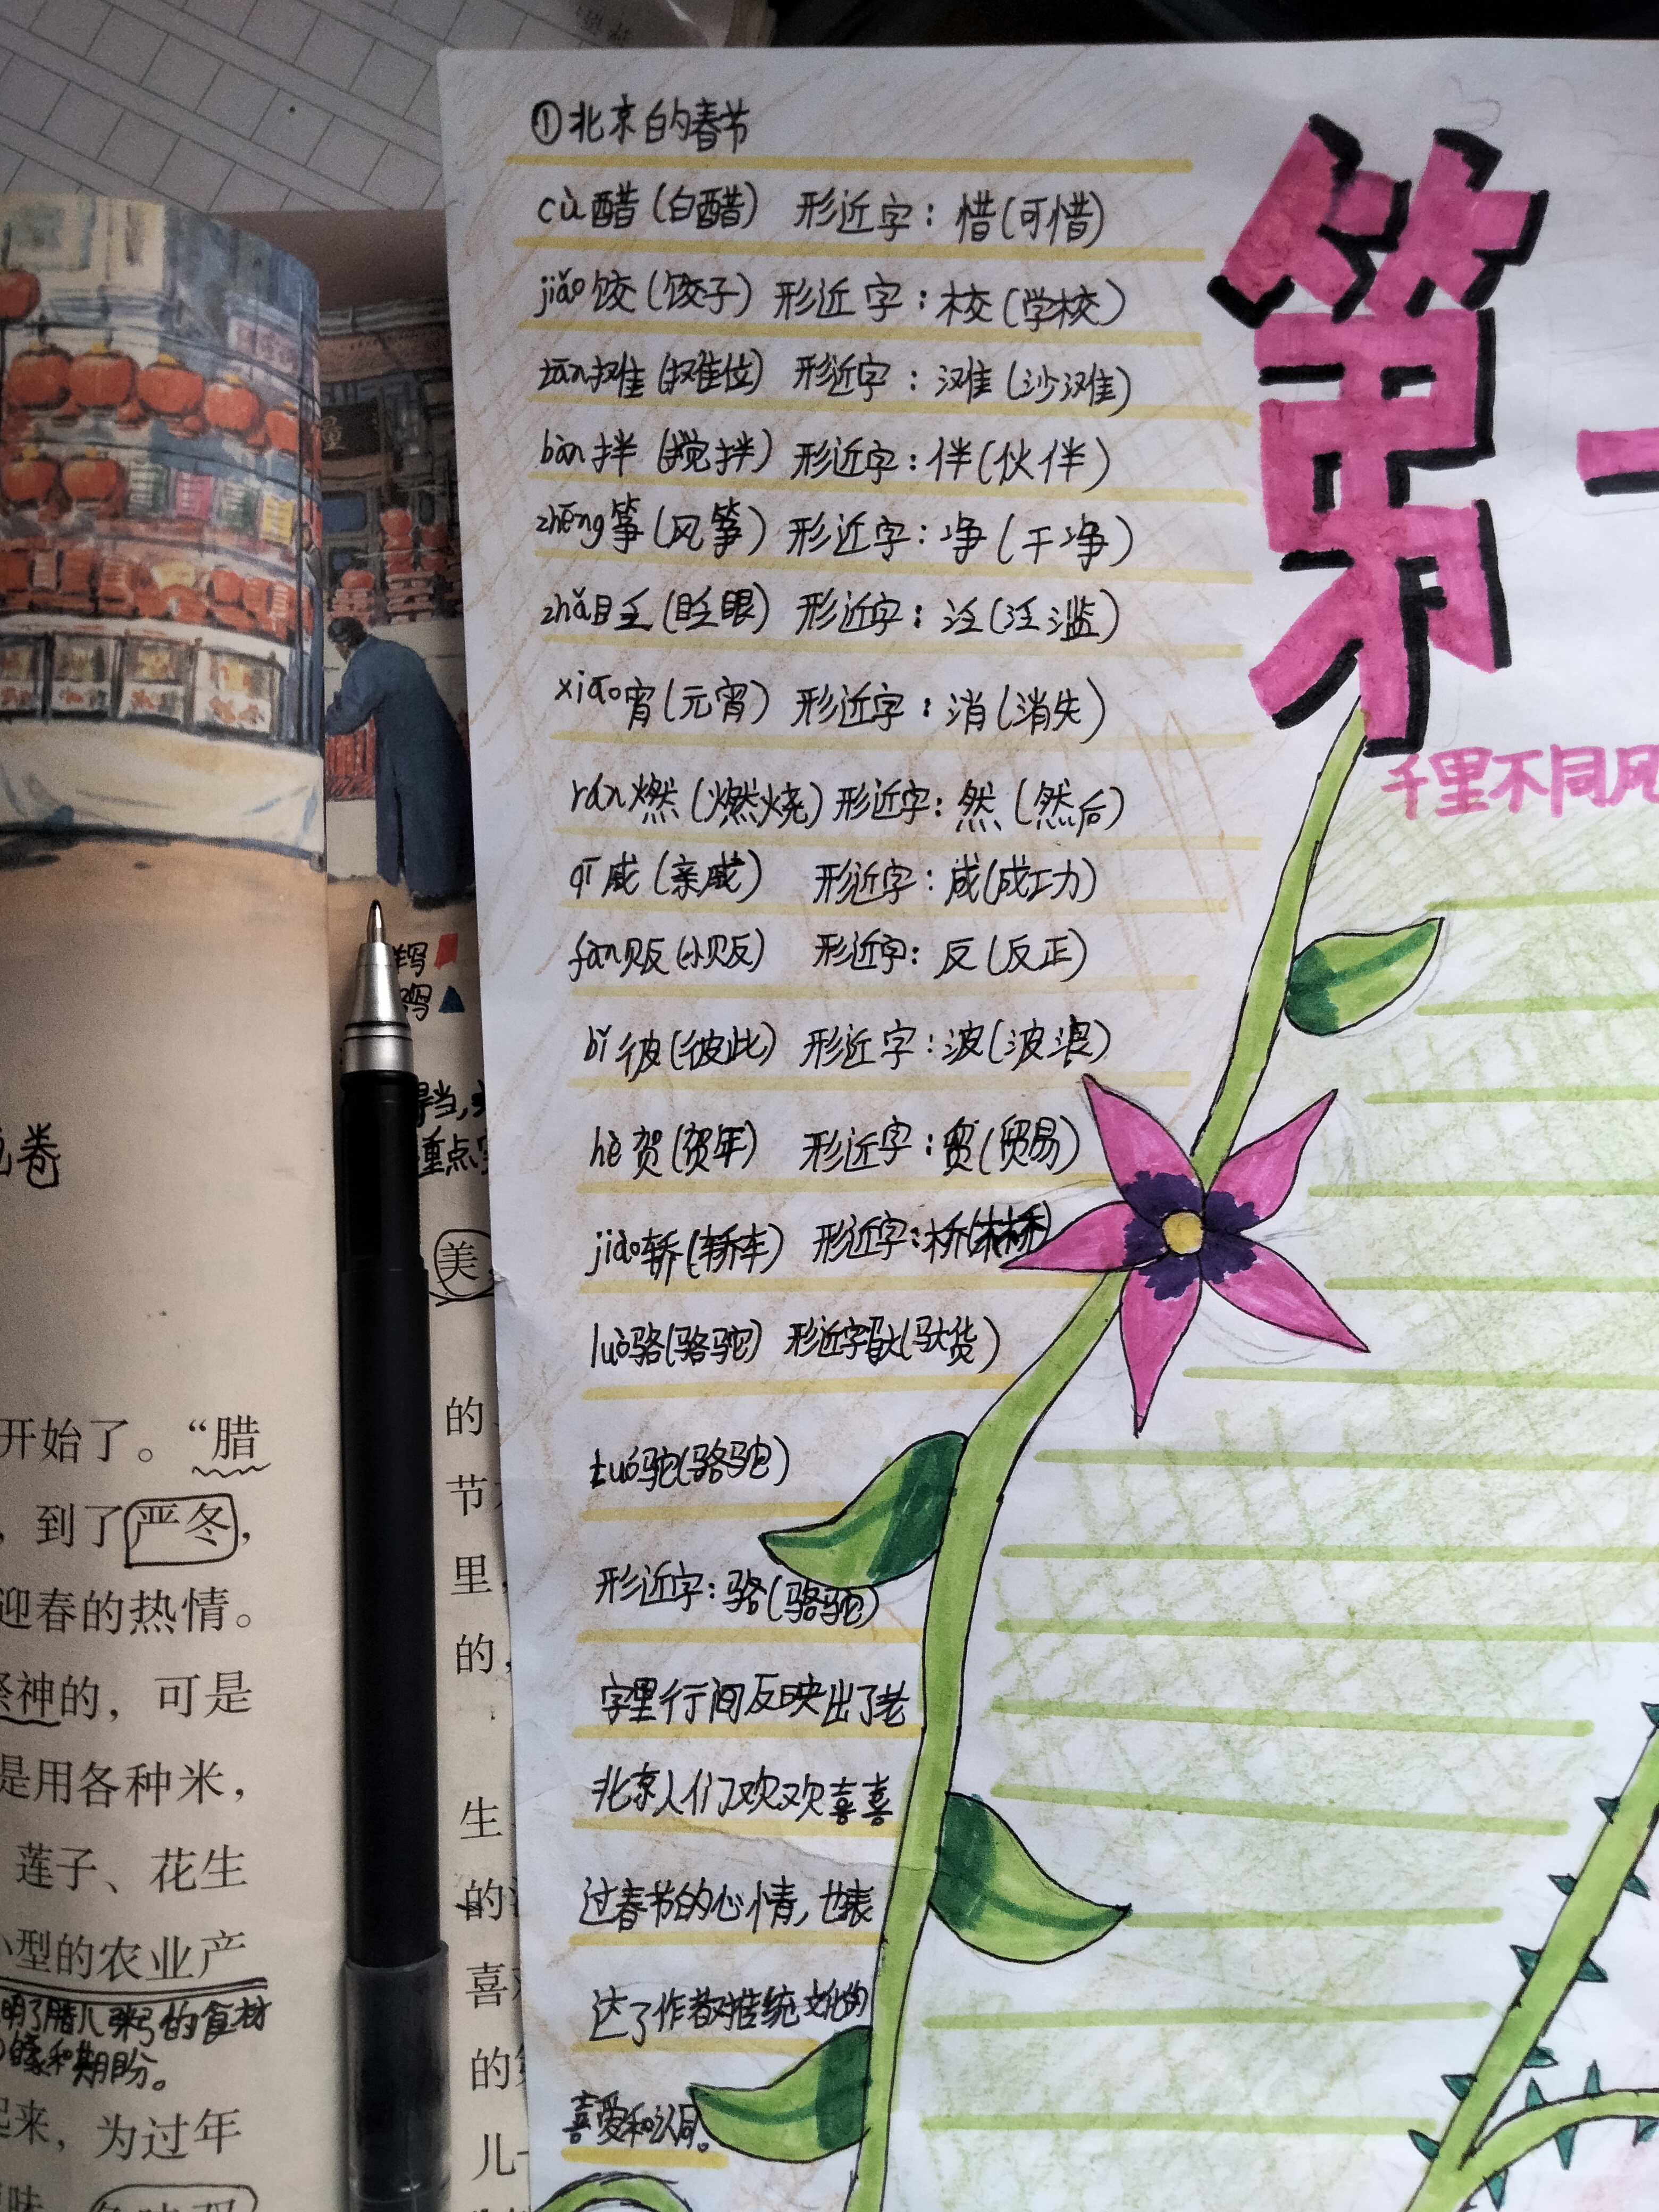 ①北京的春节
cù醋(白醋) 形近字:惜(可惜)
jiǎo饺(饺子) 形近字:校(学校)
tān摊(摊位) 形近字:滩(沙滩)
bàn拌(搅拌) 形近字:伴(伙伴)
zhēng筝(风筝) 形近字:净(干净)
zhǎ眨(眨眼) 形近字:泛(泛滥)
xiāo宵(元宵) 形近字:消(消失)
rán燃(燃烧) 形近字:然(然后)
qī戚(亲戚) 形近字:成(成功)
fàn贩(小贩) 形近字:反(反正)
bǐ彼(彼此) 形近字:波(波浪)
hè贺(贺年) 形近字:贸(贸易)
jiào轿(轿车) 形近字:桥(林桥)
luò骆(骆驼) 形近字驮(驮货)
tuó驼(骆驼)
形近字:骆(骆驼)
字里行间反映出了老
北京人们欢欢喜喜
过春节的心情,也表
达了作者对传统文化的
喜爱和认同。
第一
千里不同风
卷
重点
美
开始了。“腊
,到了严冬,
迎春的热情。
祭神的,可是
是用各种米,
莲子、花生
小型的农业产
明了腊八粥的食材
和期盼。
起来,为过年
的
节
里,
的,
生
的
喜
的
儿